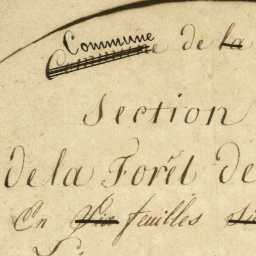 Commune de la
Section
de la Forêt de
En six feuilles